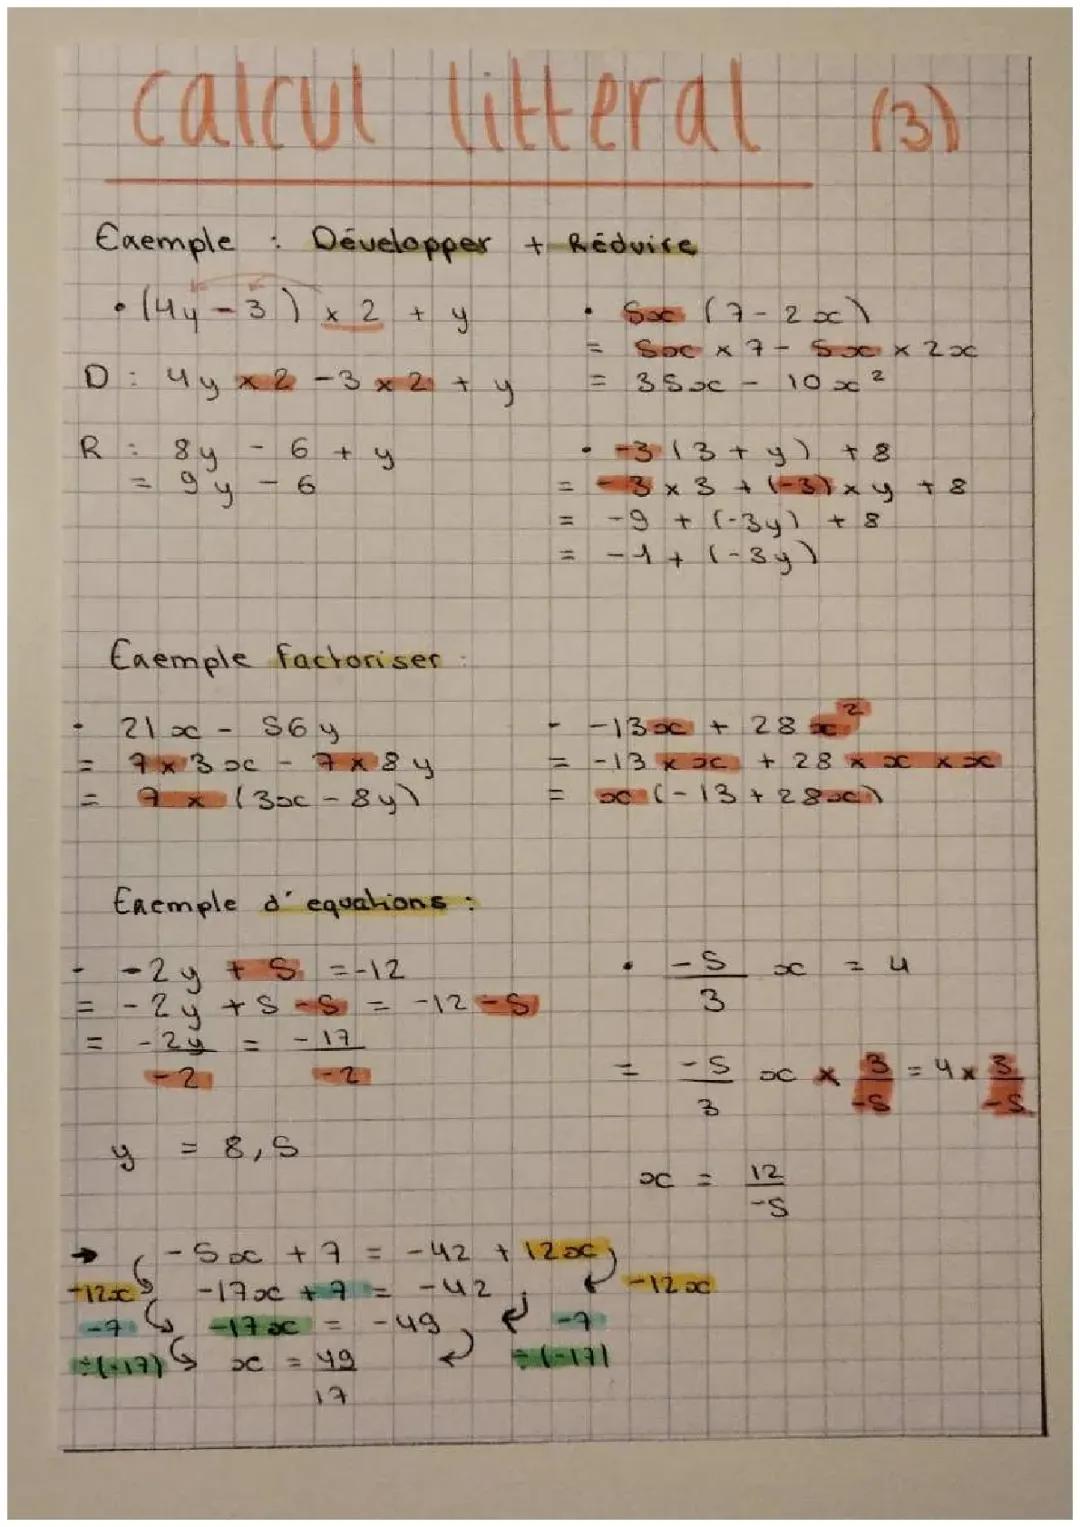 calcul littéral (3)
Exemple : Développer + Réduire
• (4y - 3) x 2 + y
D : 4y x 2 - 3 x 2 + y
R : 8y - 6 + y
= 9y - 6
• 5x (7 - 2x)
= 5x x 7 - 5x x 2x
= 35x - 10x²
• -3 (3 + y) + 8
= -3 x 3 + (-3) x y + 8
= -9 + (-3y) + 8
= -1 + (-3y)
Exemple factoriser :
- 21x - 56y
= 7 x 3x - 7 x 8y
= 7 x (3x - 8y)
- -13x + 28x²
= -13 x x + 28 x x x x
= x (-13 + 28x)
Exemple d'equations :
- -2y + 5 = -12
= -2y + 5 - 5 = -12 - 5
= -2y/-2 = -17/-2
y = 8,5
• -5/3 x = 4
= -5/3 x x 3/-5 = 4 x 3/-5
x = 12/-5
→ -5x + 7 = -42 + 12x
-12x -17x + 7 = -42 -12x
-7 -17x = -49 -7
÷(-17) x = 49/17 ÷(-17)